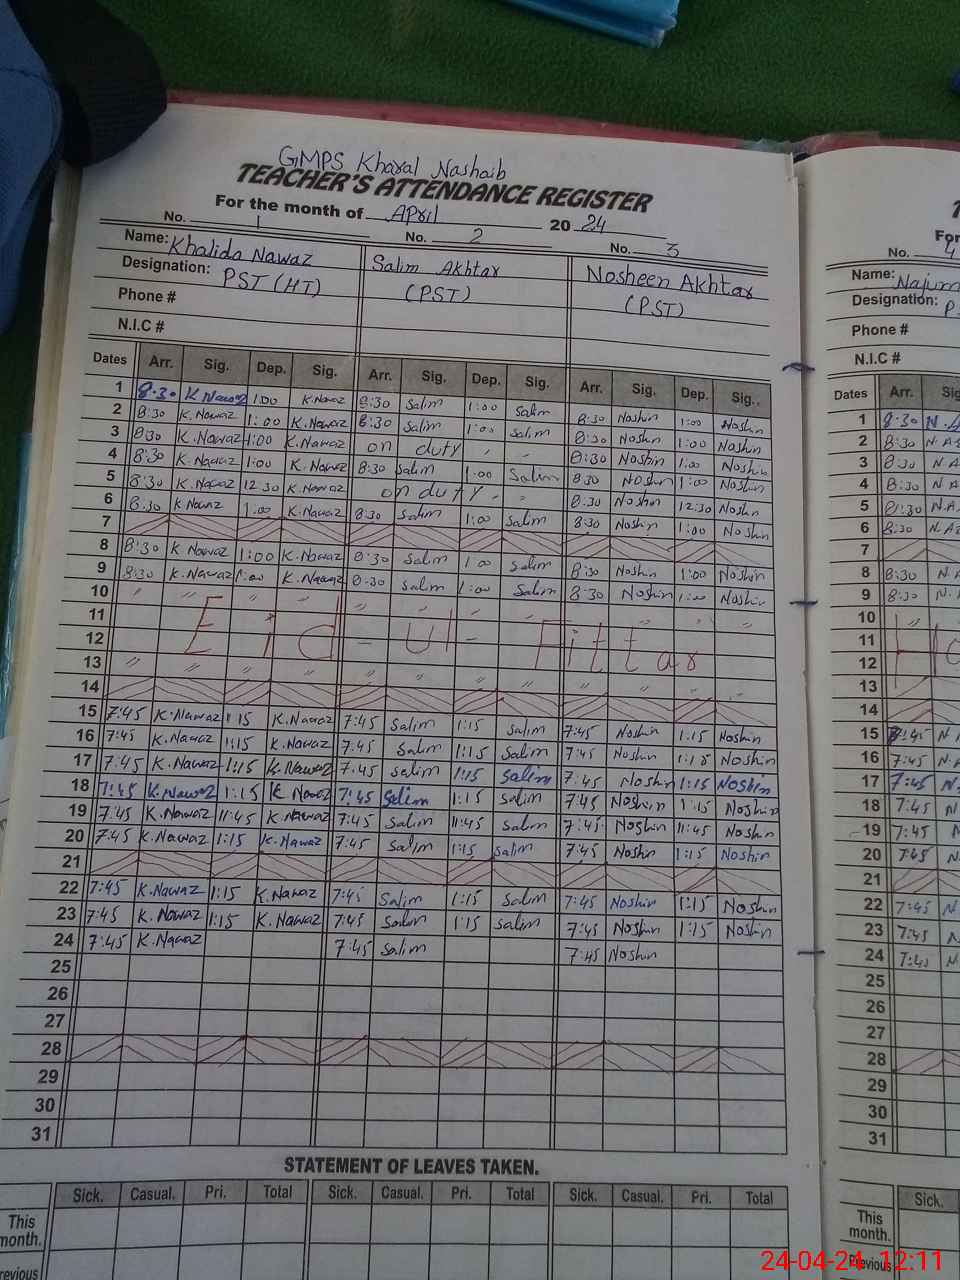 GMPS Kharal Nashaib
TEACHER'S ATTENDANCE REGISTER
For the month of April 2024
No. 1 No. 2 No. 3
Name: Khalida Nawaz Salim Akhtar Nosheen Akhtar
Designation: PST (HT) (PST) (PST)
Phone #
N.I.C #
Dates Arr. Sig. Dep. Sig. Arr. Sig. Dep. Sig. Arr. Sig. Dep. Sig.
1 8:30 K.Nawaz 1:00 K.Nawaz 8:30 Salim 1:00 Salim 8:30 Noshin 1:00 Noshin
2 8:30 K.Nawaz 1:00 K.Nawaz 8:30 Salim 1:00 Salim 8:30 Noshin 1:00 Noshin
3 8:30 K.Nawaz 1:00 K.Nawaz on duty " " 8:30 Noshin 1:00 Noshin
4 8:30 K.Nawaz 1:00 K.Nawaz 8:30 Salim 1:00 Salim 8:30 Noshin 1:00 Noshin
5 8:30 K.Nawaz 12:30 K.Nawaz on duty " " 8:30 Noshin 12:30 Noshin
6 8:30 K.Nawaz 1:00 K.Nawaz 8:30 Salim 1:00 Salim 8:30 Noshin 1:00 Noshin
7
8 8:30 K.Nawaz 1:00 K.Nawaz 8:30 Salim 1:00 Salim 8:30 Noshin 1:00 Noshin
9 8:30 K.Nawaz 1:00 K.Nawaz 8:30 Salim 1:00 Salim 8:30 Noshin 1:00 Noshin
10 " " " " " " " " " " "
11
12 Eid - ul - Fittar
13 " " " " " " " " "
14
15 7:45 K.Nawaz 1:15 K.Nawaz 7:45 Salim 1:15 Salim 7:45 Noshin 1:15 Noshin
16 7:45 K.Nawaz 1:15 K.Nawaz 7:45 Salim 1:15 Salim 7:45 Noshin 1:15 Noshin
17 7:45 K.Nawaz 1:15 K.Nawaz 7:45 Salim 1:15 Salim 7:45 Noshin 1:15 Noshin
18 7:45 K.Nawaz 1:15 K.Nawaz 7:45 Salim 1:15 Salim 7:45 Noshin 1:15 Noshin
19 7:45 K.Nawaz 11:45 K.Nawaz 7:45 Salim 11:45 Salim 7:45 Noshin 11:45 Noshin
20 7:45 K.Nawaz 1:15 K.Nawaz 7:45 Salim 1:15 Salim 7:45 Noshin 1:15 Noshin
21
22 7:45 K.Nawaz 1:15 K.Nawaz 7:45 Salim 1:15 Salim 7:45 Noshin 1:15 Noshin
23 7:45 K.Nawaz 1:15 K.Nawaz 7:45 Salim 1:15 Salim 7:45 Noshin 1:15 Noshin
24 7:45 K.Nawaz 7:45 Salim 7:45 Noshin
25
26
27
28
29
30
31
STATEMENT OF LEAVES TAKEN.
Sick. Casual. Pri. Total Sick. Casual. Pri. Total Sick. Casual. Pri. Total
This month.
Previous
No. 4
Name:
Designation:
Phone #
N.I.C #
Dates Arr.
1 8:30
2 8:30
3 8:30
4 8:30
5 8:30
6 8:30
7
8 8:30
9 8:30
10
11
12
13
14
15 7:45
16 7:45
17 7:45
18 7:45
19 7:45
20 7:45
21
22 7:45
23 7:45
24 7:45
25
26
27
28
29
30
31
Sick.
This month.
Previous
24-04-24 12:11